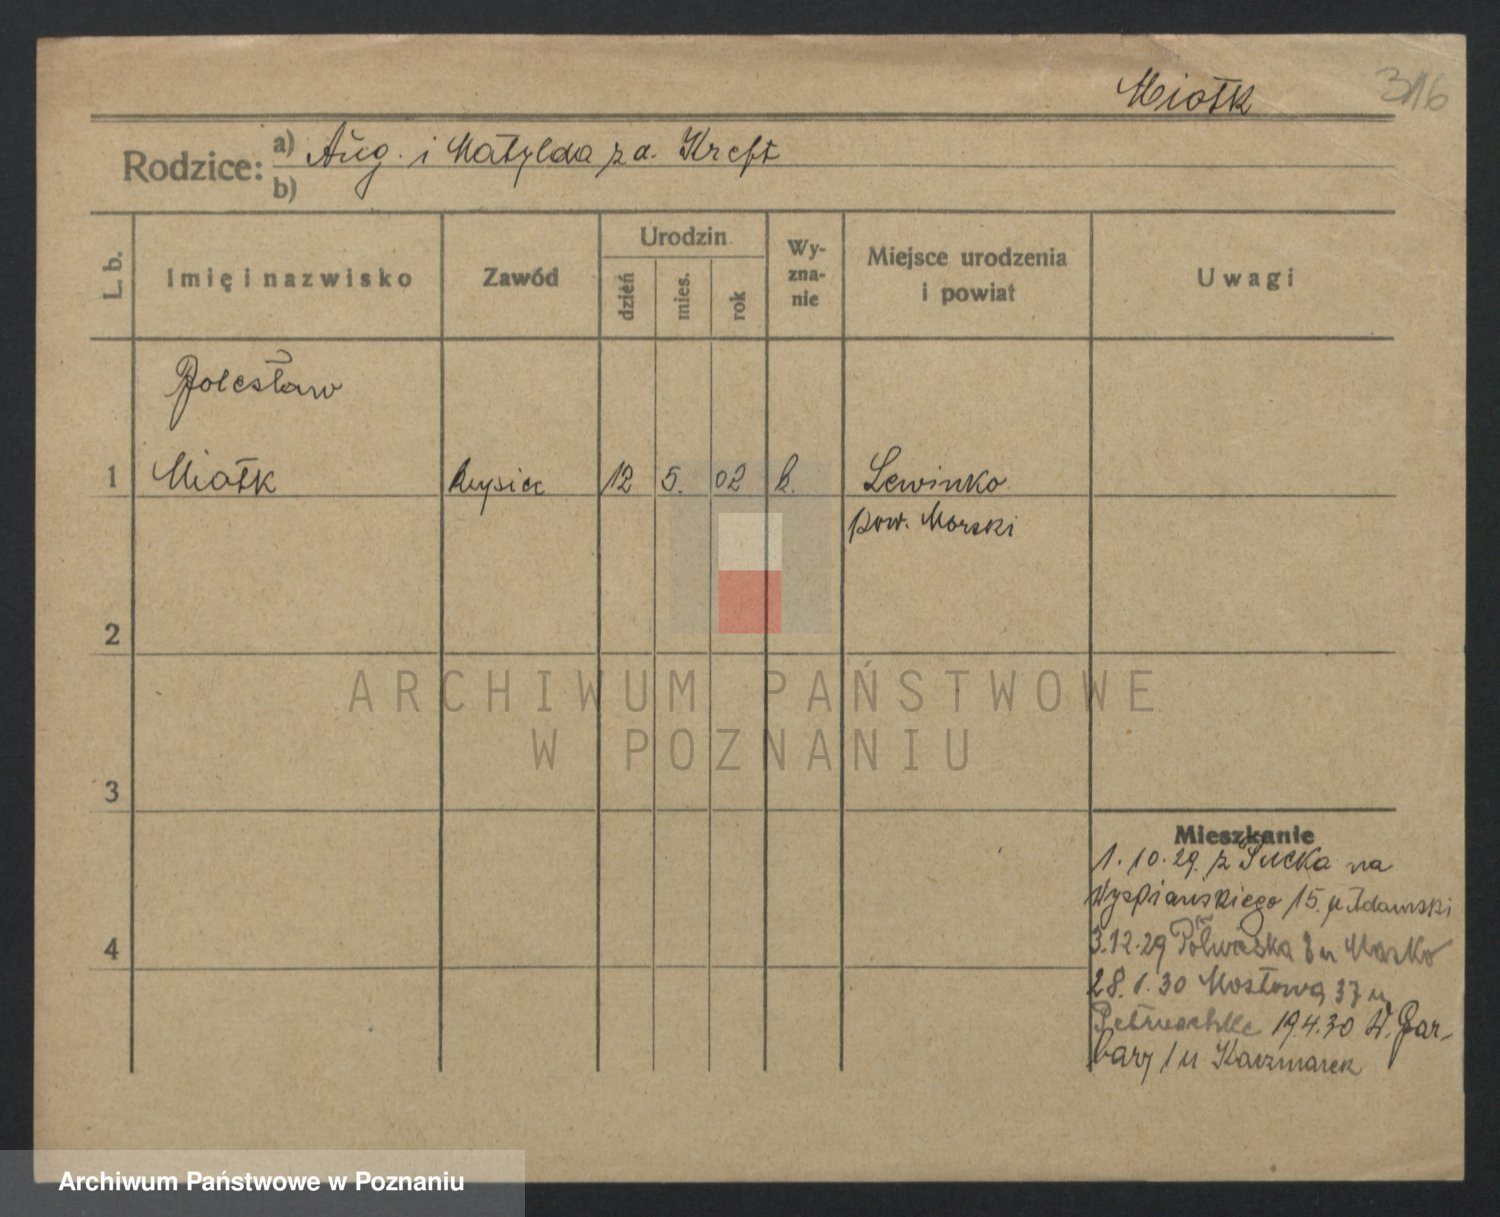 Miotk
316
Rodzice: a) Aug. i Matylda z d. Kreft
b)
L. b.
Imię i nazwisko
Zawód
Urodzin
dzień
mies.
rok
Wy-
zna-
nie
Miejsce urodzenia
i powiat
Uwagi
Bolesław
1 Miotk 12 5. 02 k. Lewinko
pow. Morski
2
ARCHIWUM PAŃSTWOWE
W POZNANIU
3
Mieszkanie
1. 10. 29. z Pucka na
Wyspiańskiego 15. u Adamski
4
3.12.29 Półwiejska 8 u Masko
28. 1. 30 Mostowa 37 u
Petruschke 19.4.30 W. Gar-
bary 1 u Kaczmarek
Archiwum Państwowe w Poznaniu